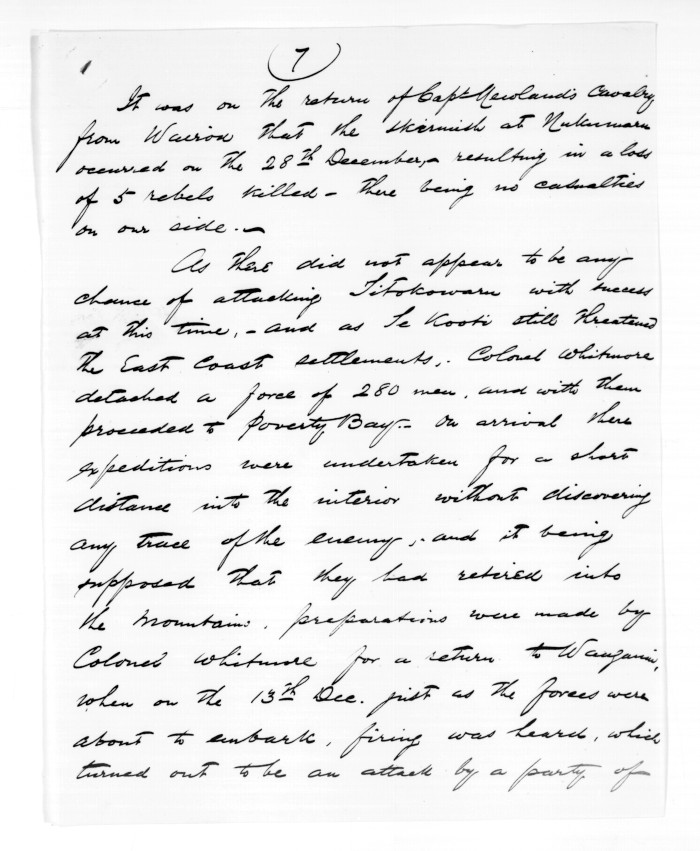 7
It was on the return of Capt Newland's Cavalry
from Wairoa that the skirmish at Nukumaru
occurred on the 28th December, - resulting in a loss
of 5 rebels killed - there being no casualties
on our side. -
As there did not appear to be any
chance of attacking Titokowaru with success
at this time, - and as Te Kooti still threatened
the East Coast settlements, - Colonel Whitmore
detached a force of 280 men, and with them
proceeded to Poverty Bay. - On arrival there
expeditions were undertaken for a short
distance into the interior without discovering
any trace of the enemy, - and it being
supposed that they had retired into
the Mountains, preparations were made by
Colonel Whitmore for a return to Wanganui,
when on the 13th Dec. just as the forces were
about to embark, firing was heard, which
turned out to be an attack by a party of